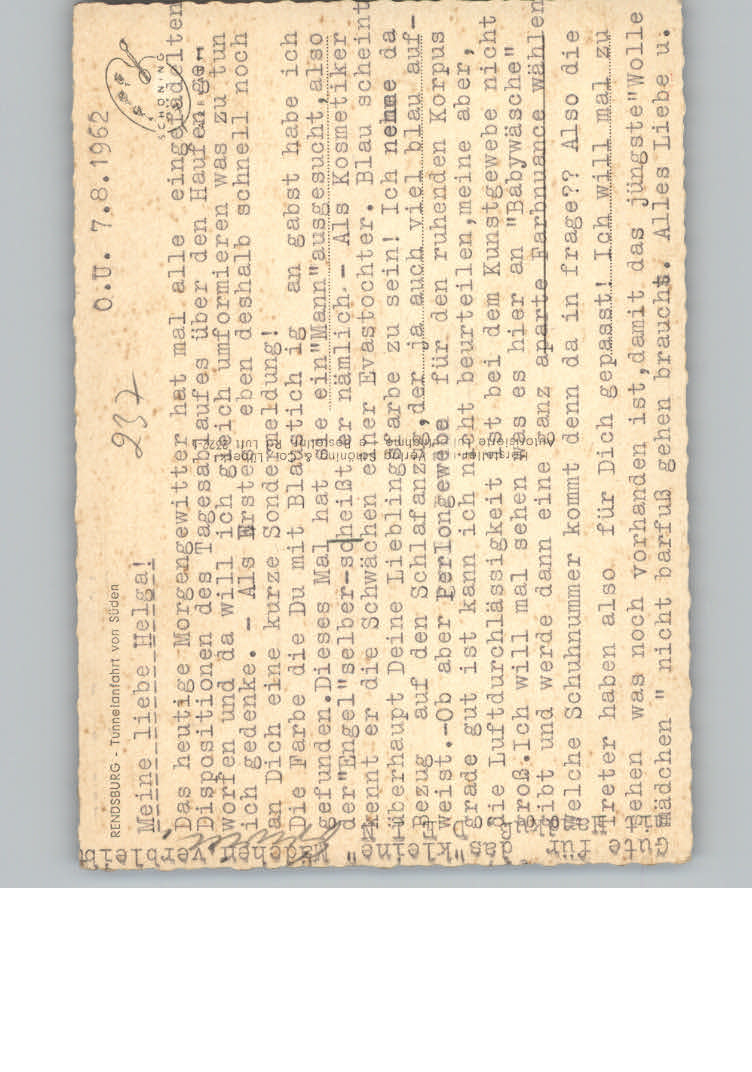 RENDSBURG - Tunnelanfahrt von Süden
O.U. 7.8.1962
237
SCHÖNING
Meine liebe Helga!
Das heutige Morgengewitter hat mal alle eingefädelten
Dispositionen des Tagesablaufes über den Haufen ge-
worfen und da will ich gleich umformieren was zu tun
ich gedenke. - Als Erstes eben deshalb schnell noch
an Dich eine kurze Sondermeldung!
Die Farbe die Du mit Blaustich ig an gabst habe ich
gefunden.Dieses Mal hat sie ein"Mann"ausgesucht,also
der"Engel"selber-scheißt er nämlich.- Als Kosmetiker
kennt er die Schwächen einer Evastochter. Blau scheint
überhaupt Deine Lieblingsfarbe zu sein! Ich nehme da
Bezug auf den Schlafanzug,der ja auch viel blau auf-
weist.-Ob aber Perlongewebe für den ruhenden Korpus
grade gut ist kann ich nicht beurteilen,meine aber,
die Luftdurchlässigkeit ist bei dem Kunstgewebe nicht
groß.Ich will mal sehen was es hier an "Babywäsche"
gibt und werde dann eine ganz aparte Farbnuance wählen
Welche Schuhnummer kommt denn da in frage?? Also die
Treter haben also für Dich gepasst! Ich will mal zu
sehen was noch vorhanden ist,damit das jüngste"Wolle
Mädchen " nicht barfuß gehen braucht. Alles Liebe u.
Gute für das"kleine" Mädchen verbleibt